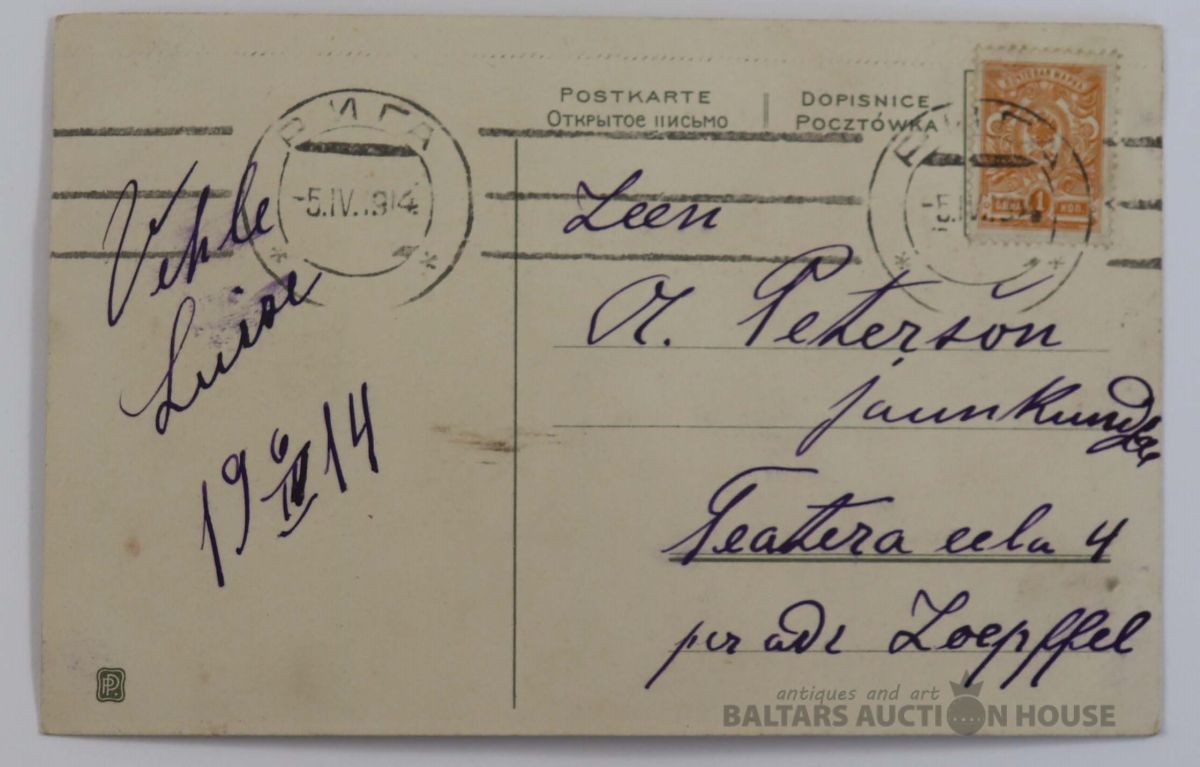 POSTKARTE
ОТКРЫТОЕ ПИСЬМО
DOPISNICE
POCZTÓWKA
ПОЧТОВАЯ МАРКА
1
КОП.
РИГА
-5.IV.1914
Vehle
Luise
19 6/IV 14
Zeen
A. Peterson
jaunkundze
Teatera eela 4
per adr Zoepffel
PP.
antiques and art
BALTARS AUCTION HOUSE